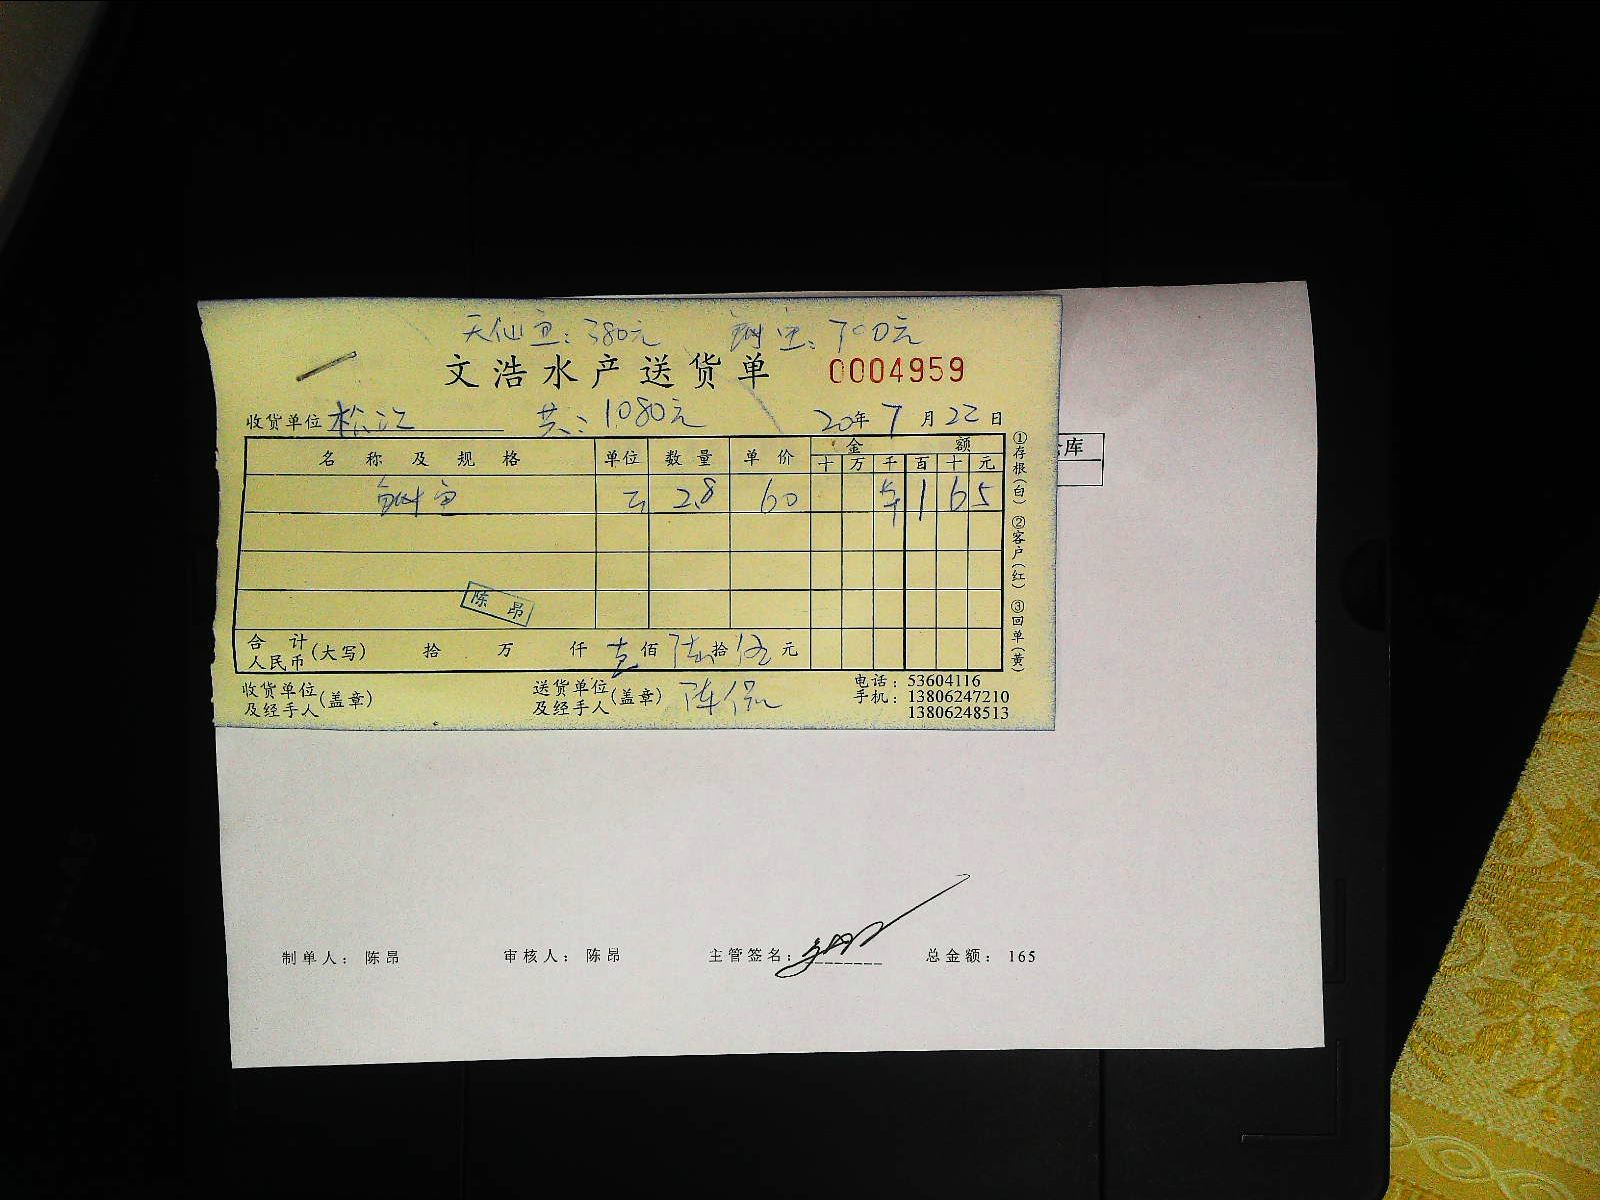 天仙鱼：380元 鲥鱼：700元
文浩水产送货单 0004959
收货单位 松江 共：1080元 20年7月22日
名称及规格 单位 数量 单价 金额
十 万 千 百 十 元
鲥鱼 2.8 60 1 6 5
陈昂
合计人民币(大写) 拾 万 仟 壹佰 陆拾 伍元
收货单位及经手人(盖章) 送货单位及经手人(盖章) 电话：53604116
手机：13806247210
13806248513
①存根(白) ②客户(红) ③回单(黄)
库
制单人：陈昂 审核人：陈昂 主管签名： 总金额：165